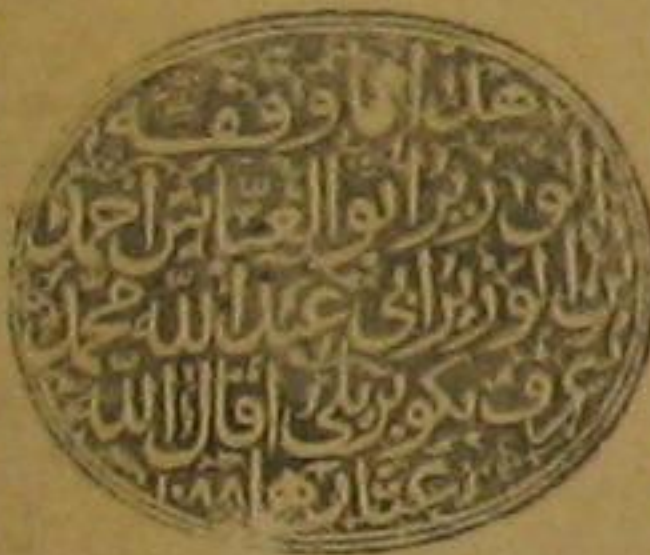 هذا ما وقفه
الوزير أبو العباس أحمد
بن الوزير أبي عبد الله محمد
عرف بكوبريلي أقال الله
عثارهما ١٠٨٨